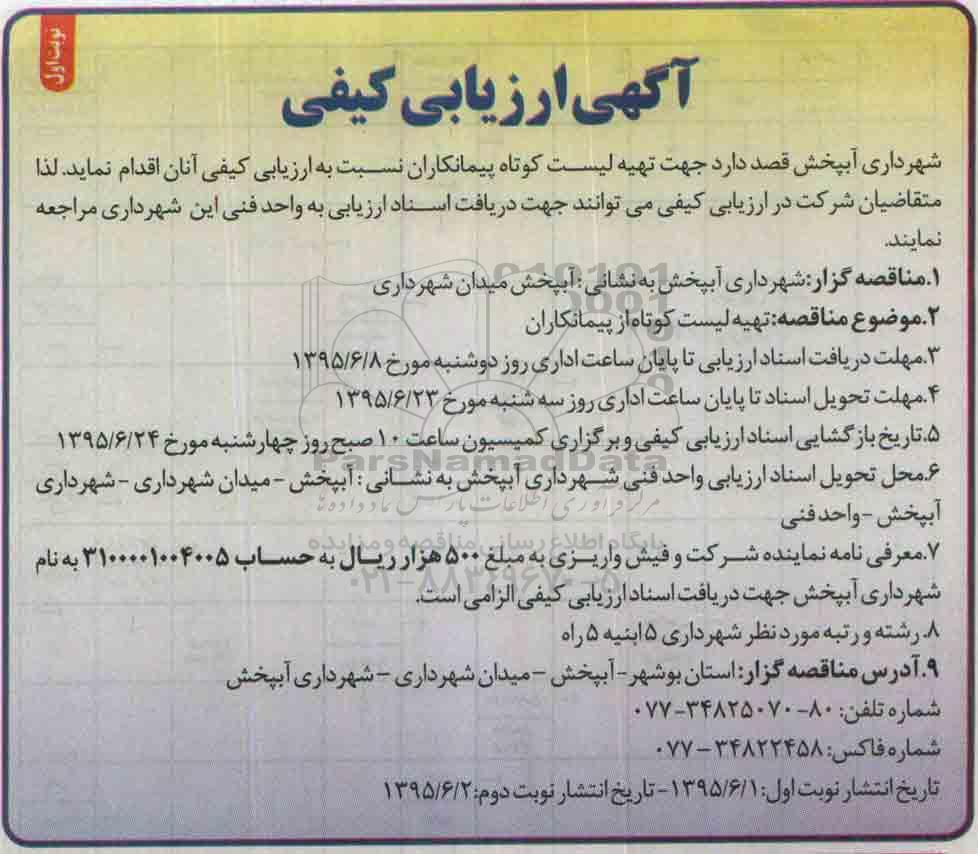 نوبت اول
آگهی ارزیابی کیفی
شهرداری آبپخش قصد دارد جهت تهیه لیست کوتاه پیمانکاران نسبت به ارزیابی کیفی آنان اقدام نماید. لذا
متقاضیان شرکت در ارزیابی کیفی می توانند جهت دریافت اسناد ارزیابی به واحد فنی این شهرداری مراجعه
نمایند.
۱.مناقصه گزار: شهرداری آبپخش به نشانی: آبپخش میدان شهرداری
۲.موضوع مناقصه: تهیه لیست کوتاه از پیمانکاران
۳.مهلت دریافت اسناد ارزیابی تا پایان ساعت اداری روز دوشنبه مورخ ۱۳۹۵/۶/۸
۴.مهلت تحویل اسناد تا پایان ساعت اداری روز سه شنبه مورخ ۱۳۹۵/۶/۲۳
۵.تاریخ بازگشایی اسناد ارزیابی کیفی و برگزاری کمیسیون ساعت ۱۰ صبح روز چهارشنبه مورخ ۱۳۹۵/۶/۲۴
ParsNamadData
۶.محل تحویل اسناد ارزیابی واحد فنی شهرداری آبپخش به نشانی: آبپخش - میدان شهرداری - شهرداری
مرکز فرآوری اطلاعات پارس نماد داده ها
آبپخش - واحد فنی
پایگاه اطلاع رسانی مناقصه و مزایده
۷.معرفی نامه نماینده شرکت و فیش واریزی به مبلغ ۵۰۰ هزار ریال به حساب ۳۱۰۰۰۰۱۰۰۴۰۰۵ به نام
۰۲۱-۸۸۳۴۹۶۷۰-۵
شهرداری آبپخش جهت دریافت اسناد ارزیابی کیفی الزامی است.
۸. رشته و رتبه مورد نظر شهرداری ۵ ابنیه ۵ راه
۹.آدرس مناقصه گزار: استان بوشهر - آبپخش – میدان شهرداری – شهرداری آبپخش
شماره تلفن: ۸۰-۳۴۸۲۵۰۷۰-۰۷۷
شماره فاکس: ۳۴۸۲۲۴۵۸ - ۰۷۷
تاریخ انتشار نوبت اول: ۱۳۹۵/۶/۱ - تاریخ انتشار نوبت دوم: ۱۳۹۵/۶/۲